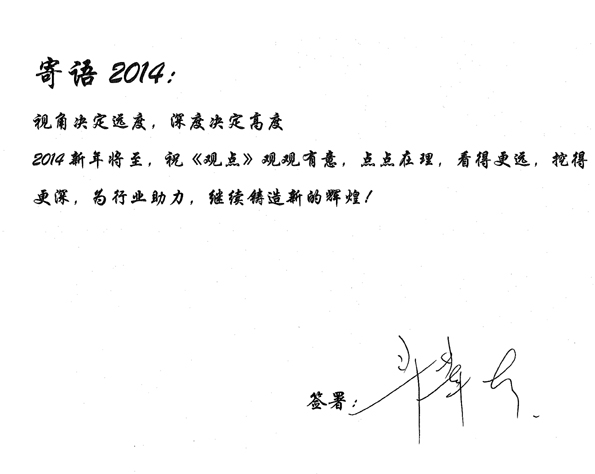 寄语 2014：
视角决定远度，深度决定高度
2014新年将至，祝《观点》观观有意，点点在理，看得更远，挖得
更深，为行业助力，继续铸造新的辉煌！
签署：